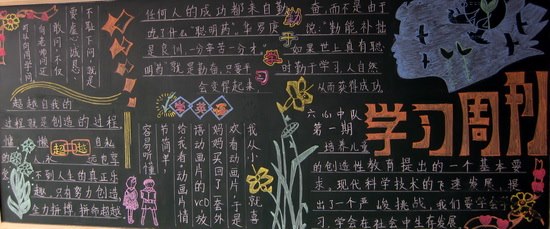 不耻下问,就是
要虚心、诚恳、
敢问,不仅
可以向同学问
任何人的成功都来自勤奋,而不是由于
吃了什么“聪明药”。华罗庚说:“勤能补拙
是良训,一分辛苦一分才。”如果世上真有聪
明药,就是勤奋,只要平时勤于学习,人自然
会变得起来,从而获得成功。
勤于学习
超越自我的
过程就是创造的过程。
超越
人永远也享
不到人生的真正乐
趣,只有努力创造
全力拼搏、拼命超越
学英语
我从小就喜
欢看动画片,于是
妈妈买回了一套外
语动画片的VCD放
给我看。动画片情
节简单,
容易听懂
中队
第一期
学习周刊
培养儿
的创造性教育提出的一个基本要
求。现代科学技术的飞速发展,提
出了一个严峻挑战,我们要学会学
习,学会在社会中生存发展。